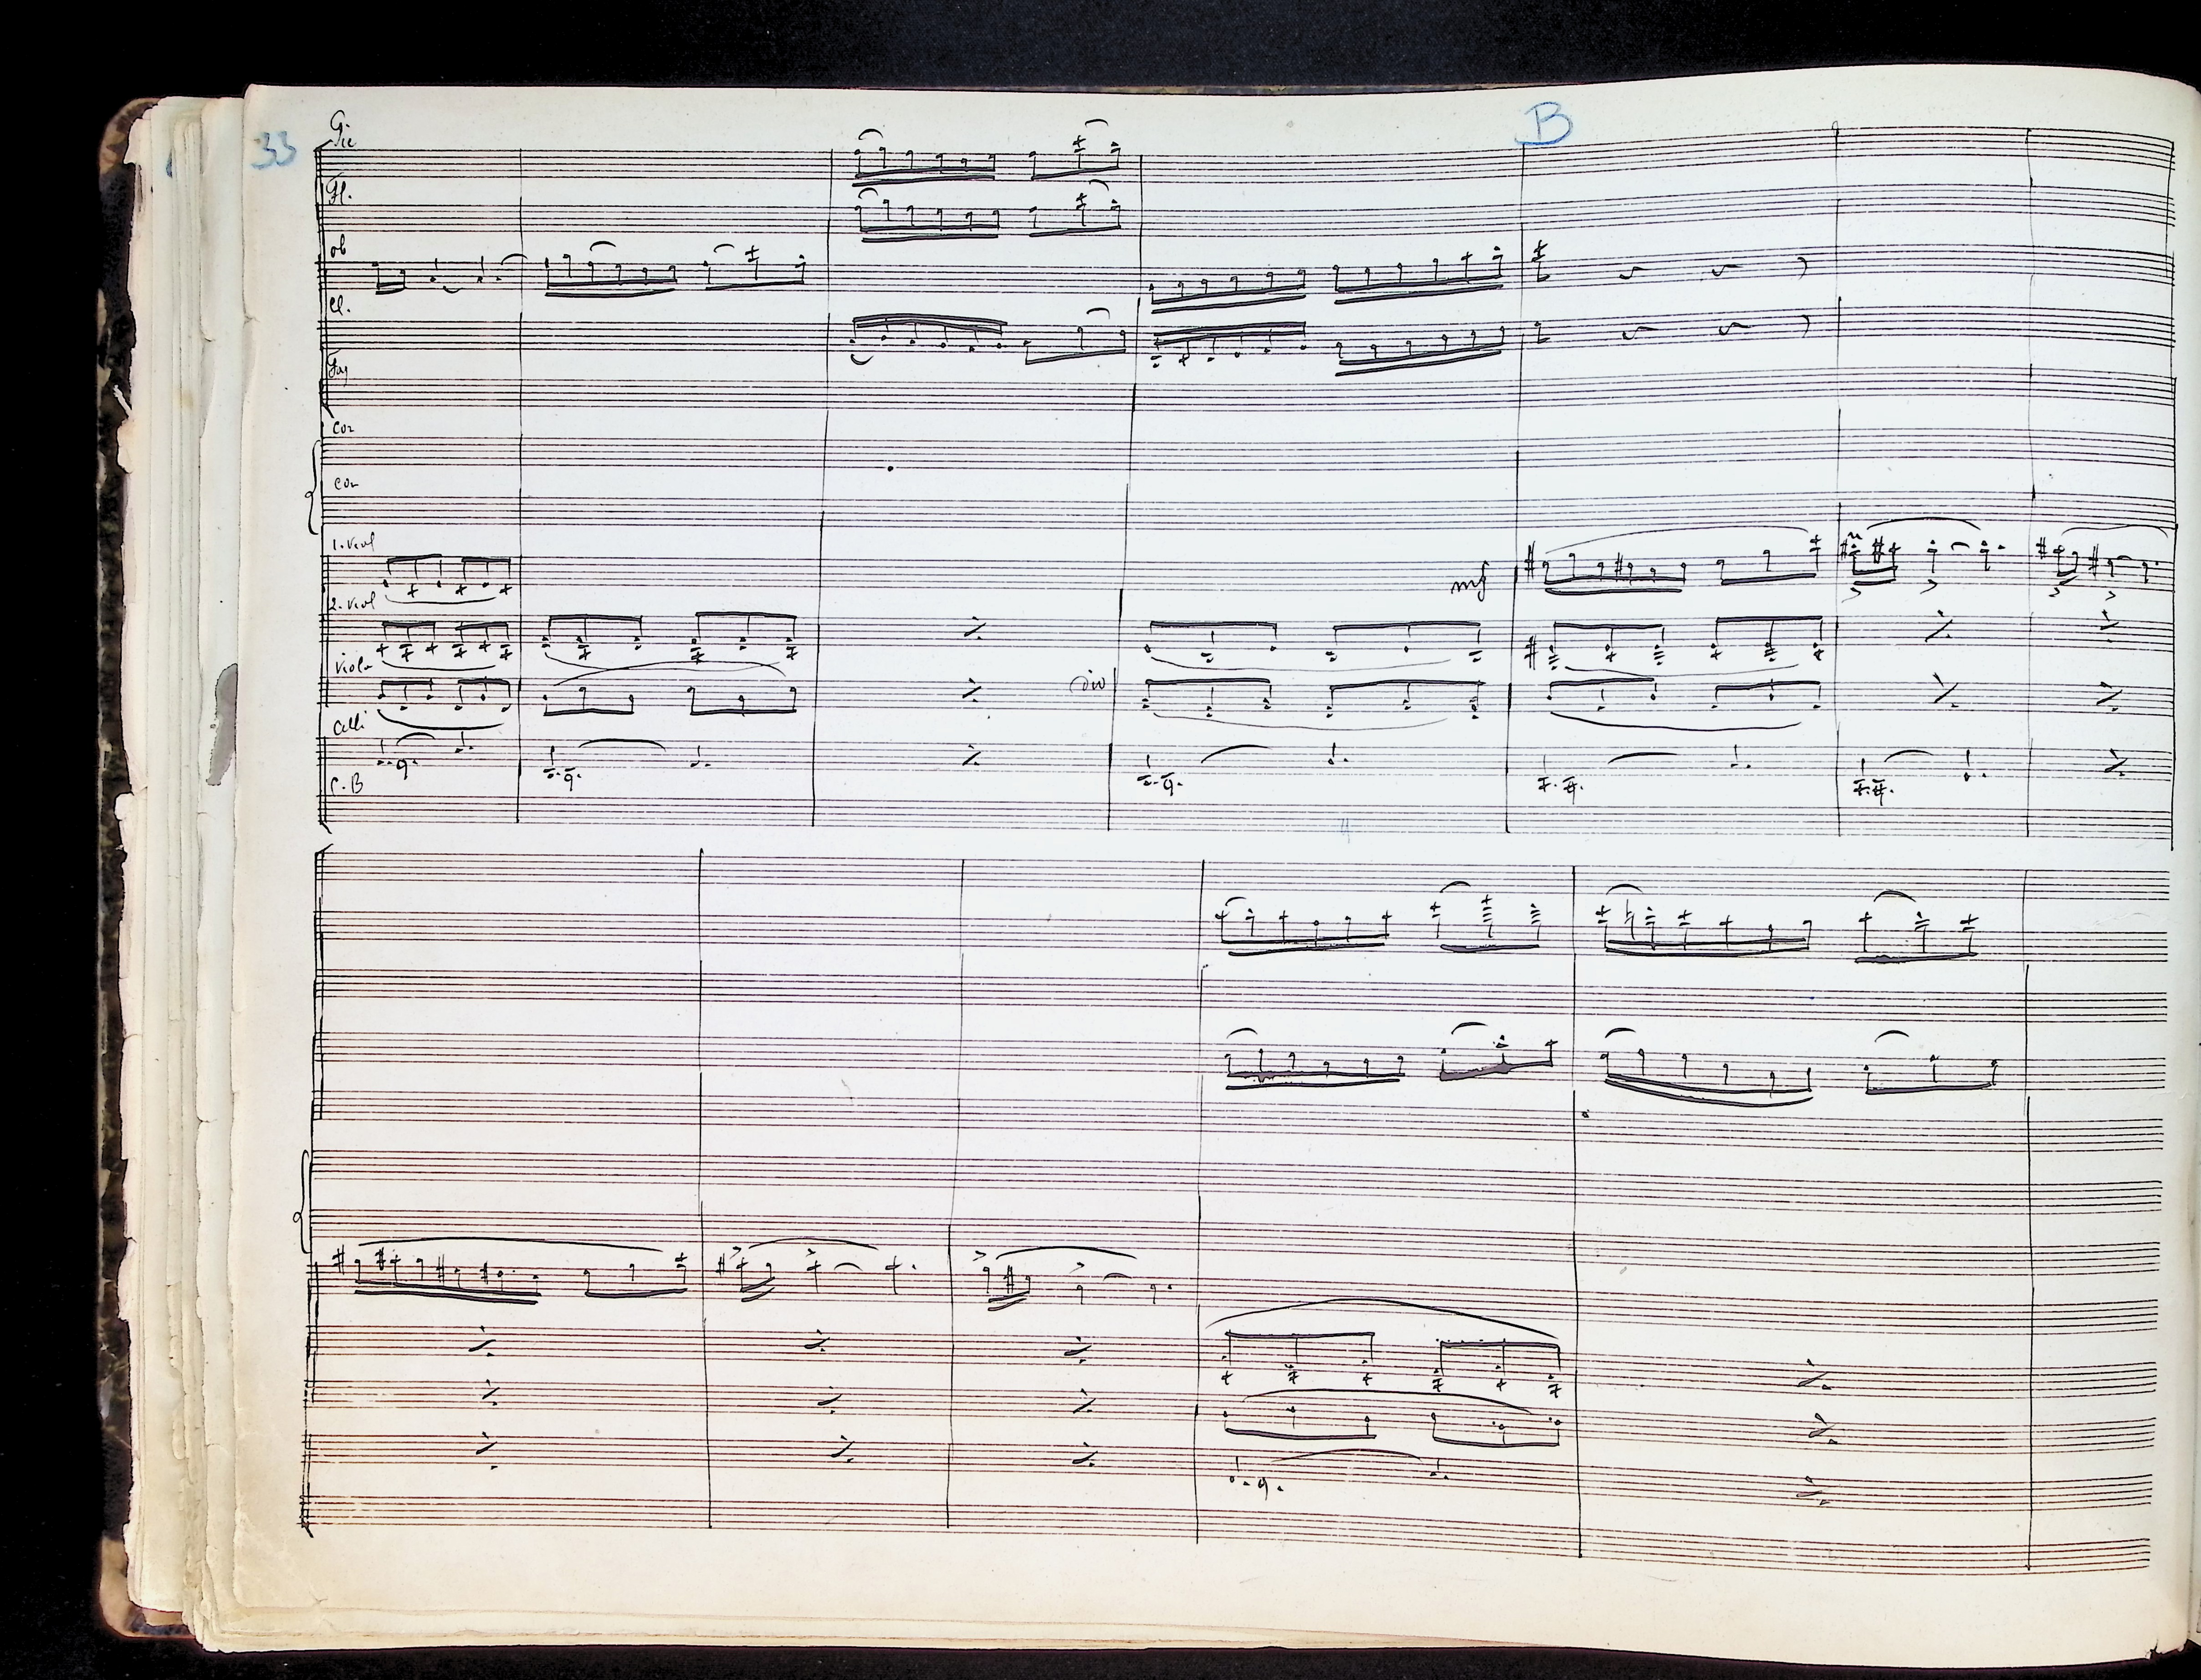 33
B
Fl.
ob
cl.
Fag
cor
cor
1. viol
mf
2. viol
viola
div
celli
C.B